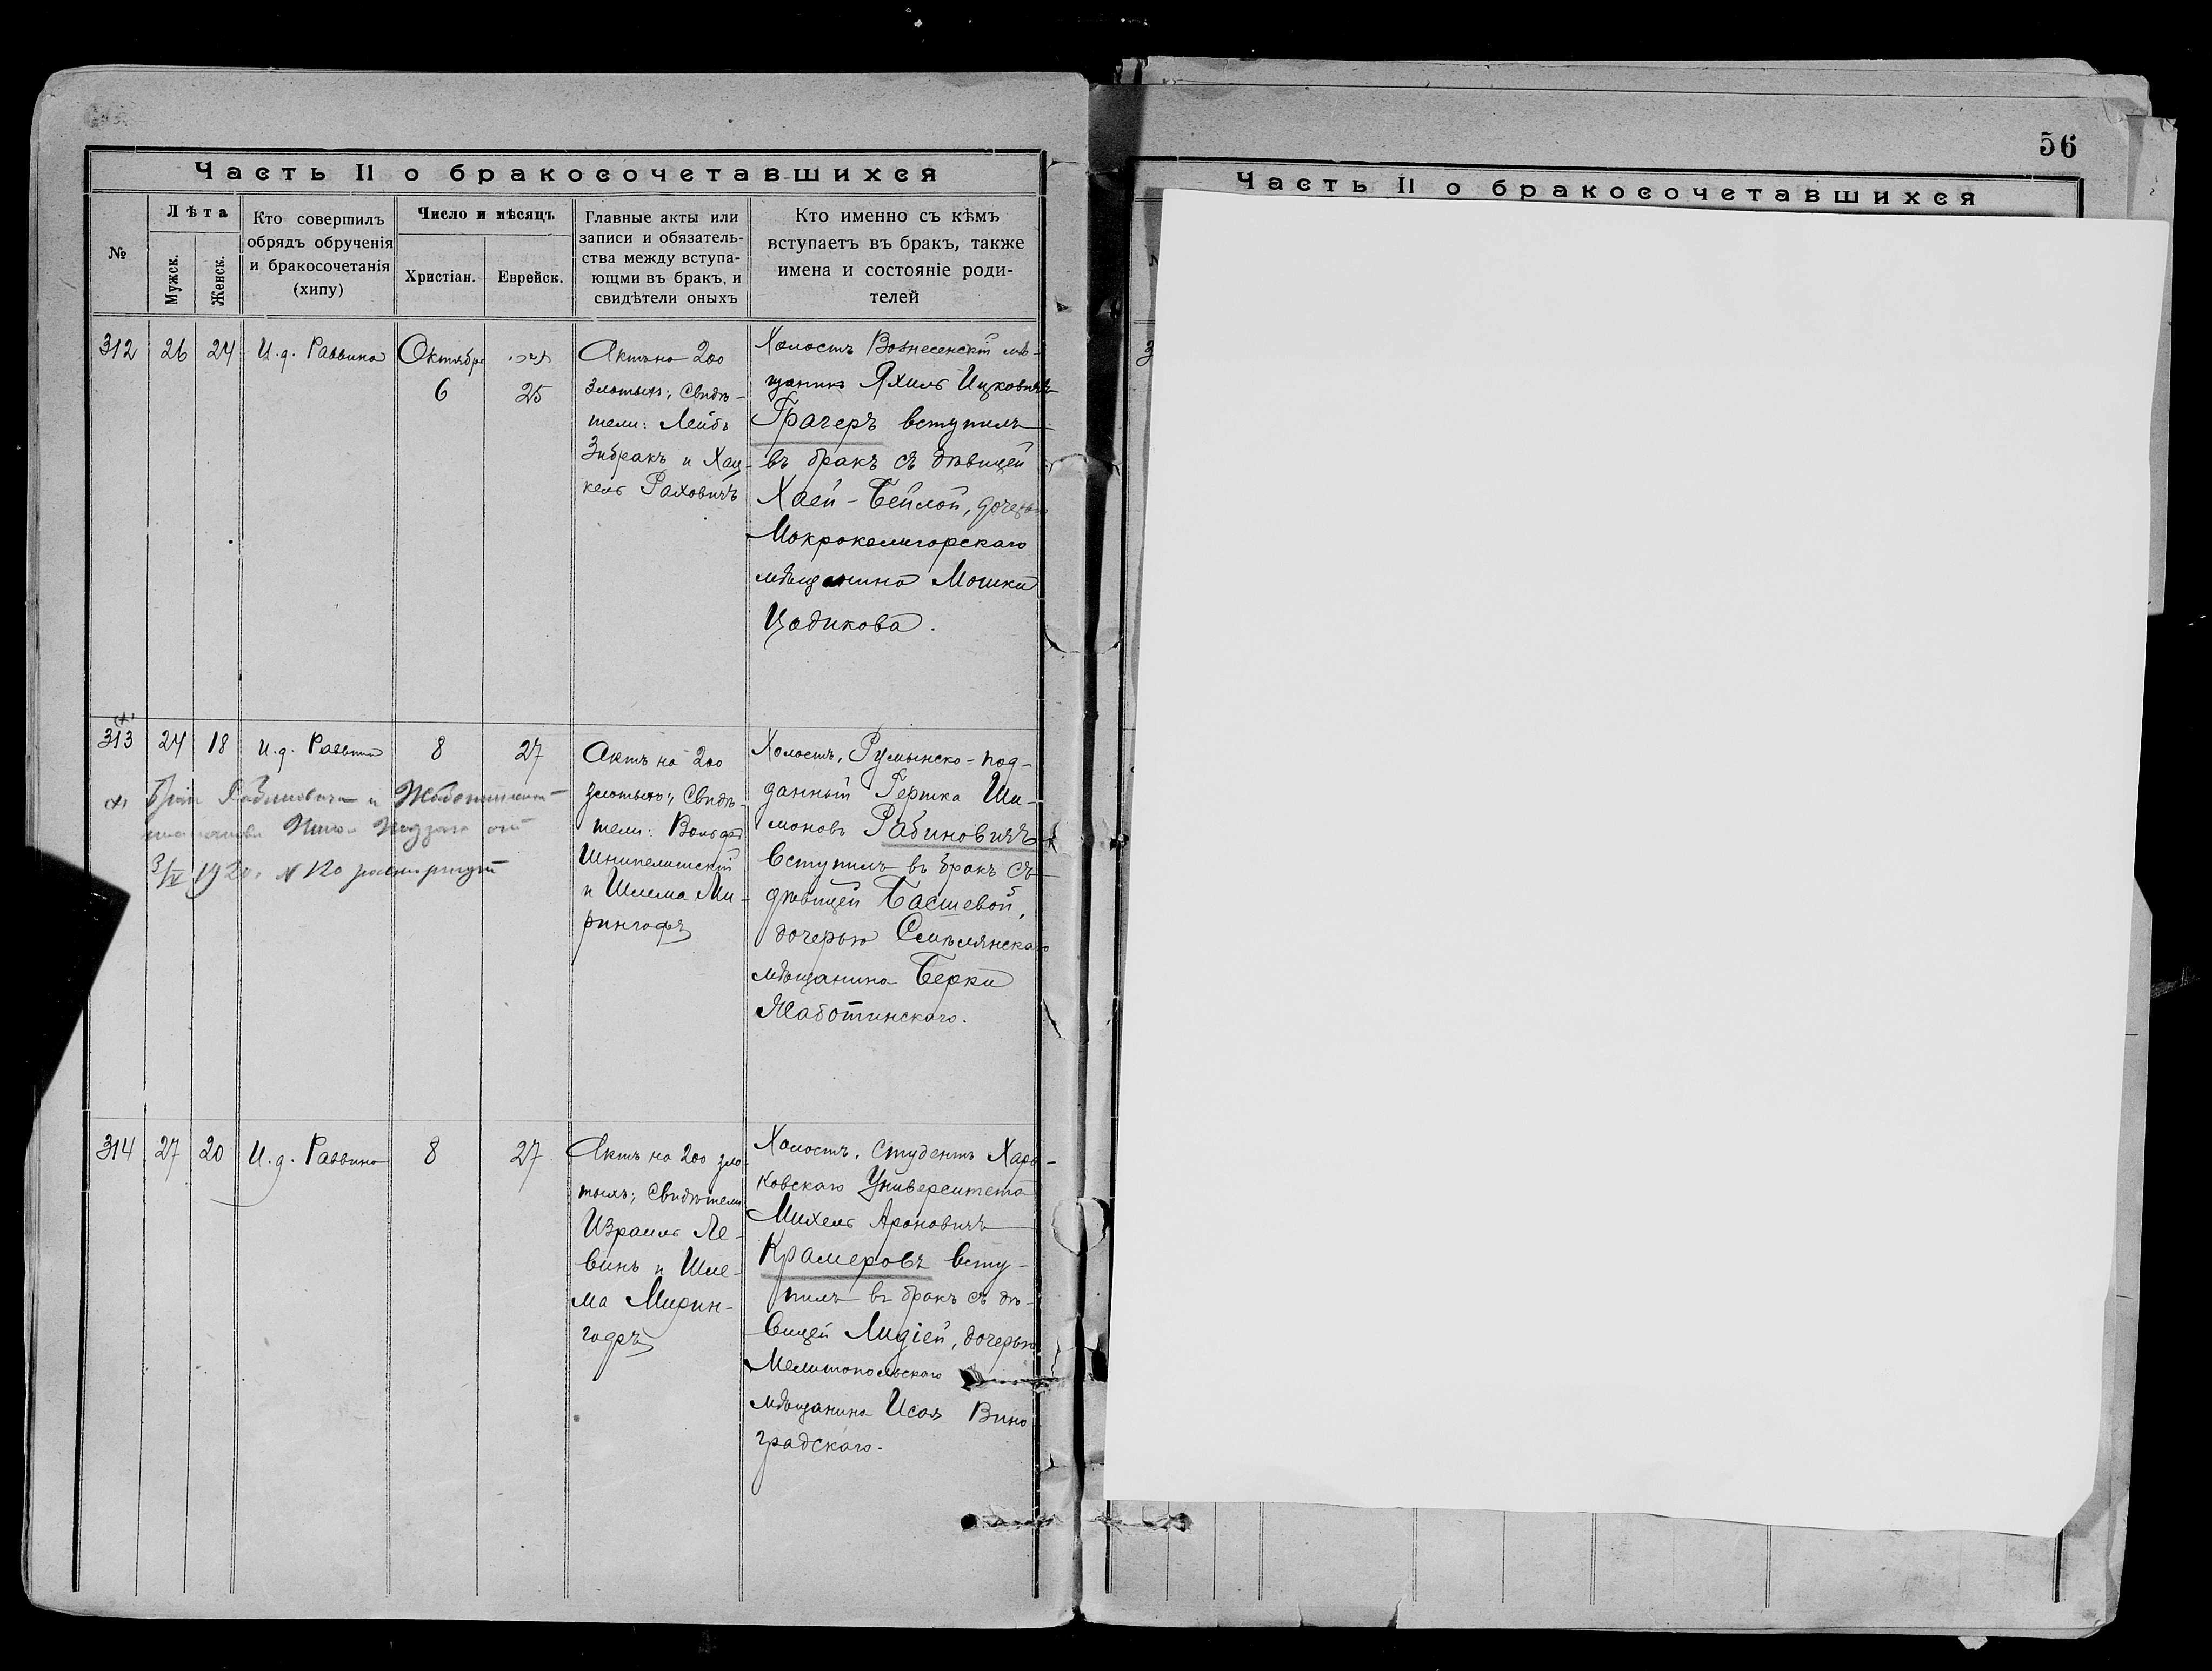 56
Часть II о бракосочетавшихся
№
Лѣта
Мужск.
Женск.
Кто совершилъ
обрядъ обрученія
и бракосочетанія
(хипу)
Число и мѣсяцъ
Христіан.
Еврейск.
Главные акты или
записи и обязатель-
ства между вступа-
ющми въ бракъ, и
свидѣтели оныхъ
Кто именно съ кѣмъ
вступаетъ въ бракъ, также
имена и состояніе роди-
телей
312
26
24
И. д. Раввина
Октября
6
25
Актъ на 200
злотыхъ; Свидѣ-
тели: Лейбъ
Зибракъ и Хац-
кель Раховичъ
Холостъ Вознесенскій мѣ-
щанинъ Яхиль Ицковичъ
Грачеръ вступилъ
въ бракъ съ дѣвицей
Хаей-Бейлой, дочерью
Мокрокалигорскаго
мѣщанина Мошки
Цодикова.
313
24
18
И. д. Раввина
8
27
Актъ на 200
злотыхъ; Свидѣ-
тели: Вольфъ
Шнипелишскій
и Шлема Ми-
рингофъ
Холостъ, Румынско-под-
данный Гершка Ши-
моновъ Рабиновичъ
вступилъ въ бракъ съ
дѣвицей Басшевой,
дочерью Смѣлянскаго
мѣщанина Берки
Жаботинскаго.
Брак Рабиновича и
от
3/IV 1920. N 120 расторгнут
314
27
20
И. д. Раввина
8
27
Актъ на 200 зло-
тыхъ; Свидѣтели
Израиль Ле-
винъ и Шле-
ма Мирин-
гофъ
Холостъ, студентъ Харь-
ковскаго Университета
Михель Ароновичъ
Крамеровъ всту-
пилъ въ бракъ съ дѣ-
вицей Лидіей, дочерью
Мелитопольскаго
мѣщанина Исая Вино-
градскаго.
Часть II о бракосочетавшихся